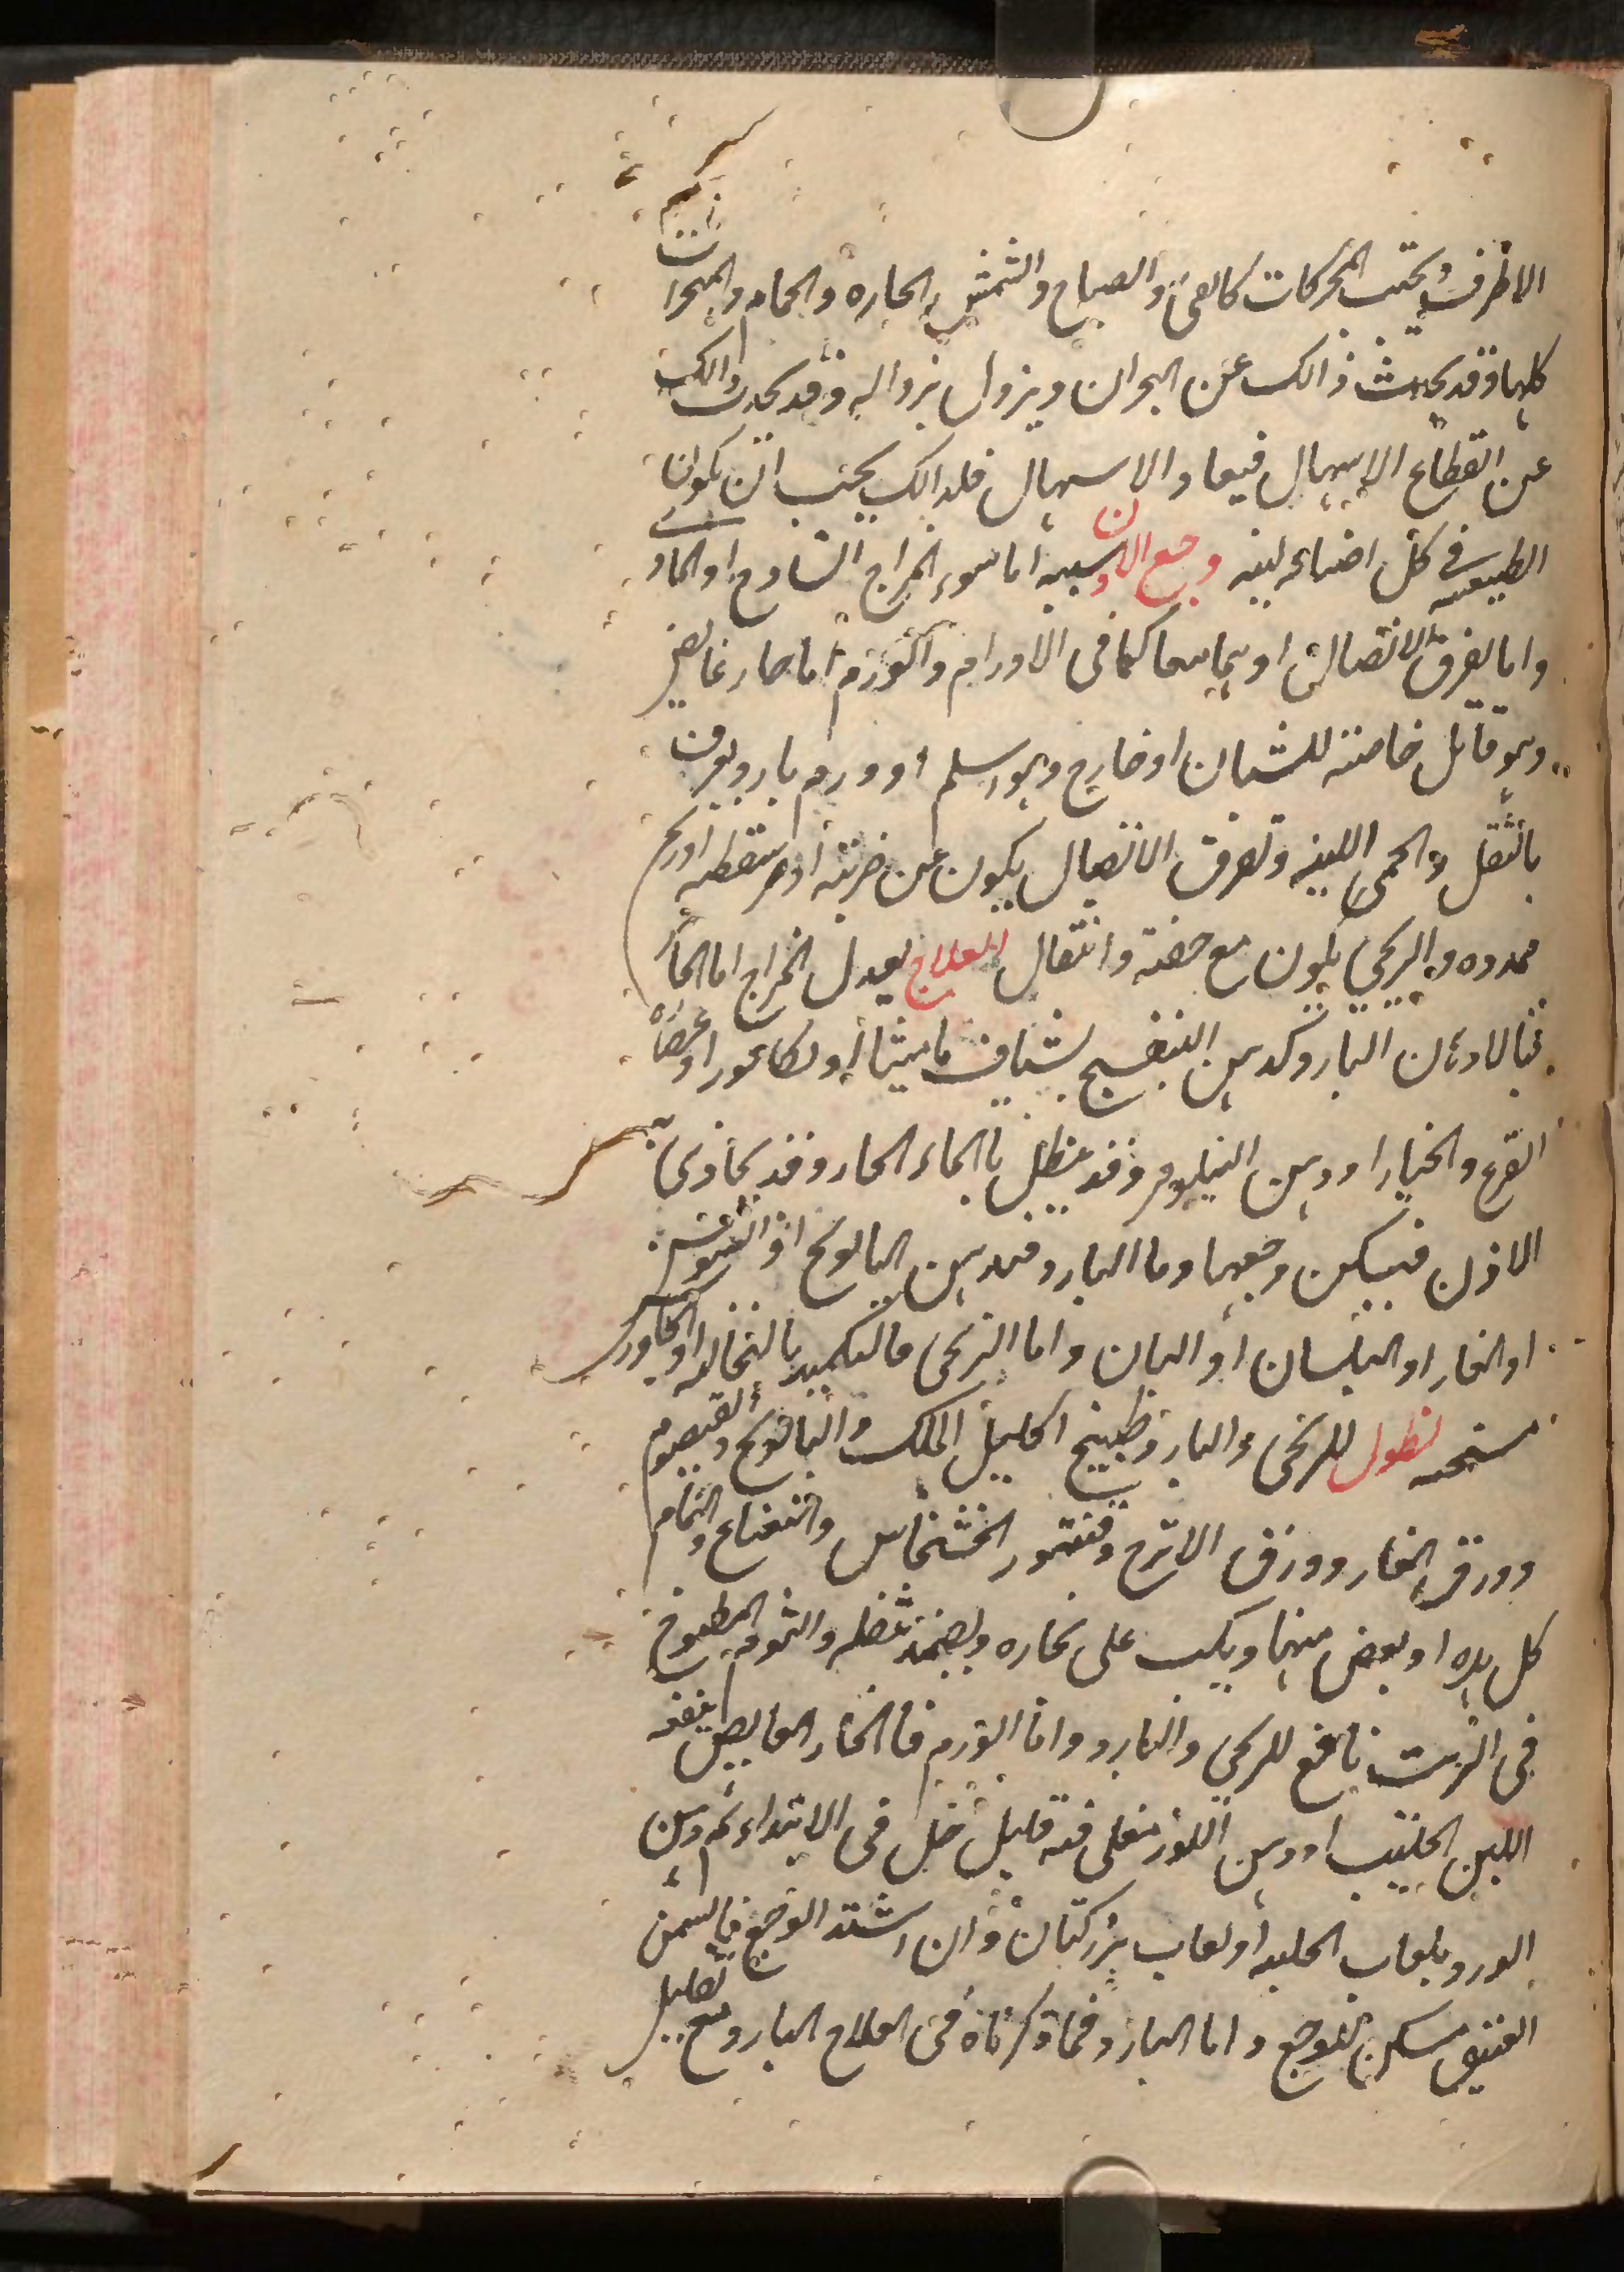 الاطراف ويجتنب المحركات كالقئ والصياح والشمس الحاره والحمام والمبخرات
كلها وقد يحدث ذالك عن البحران ويزول بزواله وقد يحدث ذالك
عن انقطاع الاسهال فيعاد الاسهال فلذالك يجتنب ان يكون
الطبيعه في كل اضاعه لينه وجع الاذن سببه اما سوء المزاج الساذج او الماد
واما تفرق الاتصال او هما معا كما في الاورام والورم اما حار غايض
وهو قاتل خاصته للشبان او خارج وهو اسلم او ورم بارد ويعرف
بالثقل والحمى اللينه وتفرق الاتصال يكون عن ضربته او سقطه او ريح
ممدده والريحي يكون مع خفته وانتقال العلاج تعديل المزاج اما الحار
فبالادهان البارد كدهن البنفسج بشياف ماميثا او بكافور او عصاره
القرع والخيار او دهن النيلوفر وقد ينطل بالماء الحار وقد يحاذى به
الاذن فيسكن وجعها وما البارد فبدهن البابونج او الشبت
او الغار او البلسان او البان واما الريحى فالتكميد بالنخاله او الجاورس
مسخنه نطول للريحى والبارد طبيخ اكليل الملك والبابونج والقيصوم
وورق الغار وورق الاترج وقشور الخشخاش والنعناع والنمام
كل هذه او بعض منها ويكب على بخاره ويضمد بثفله والثوم المطبوخ
فى الزيت نافع للريحي والبارد واما الورم فالحار الغايص ينفعه
اللبن الحليب او دهن اللوز مغلى فيه قليل خل فى الابتداء ثم دهن
الورد بلعاب الحلبه او لعاب بزر كتان وان اشتد الوجع فالسمن
العتيق مسكن للوجع واما البارد فما ذكرناه فى العلاج البارد مع تحليل